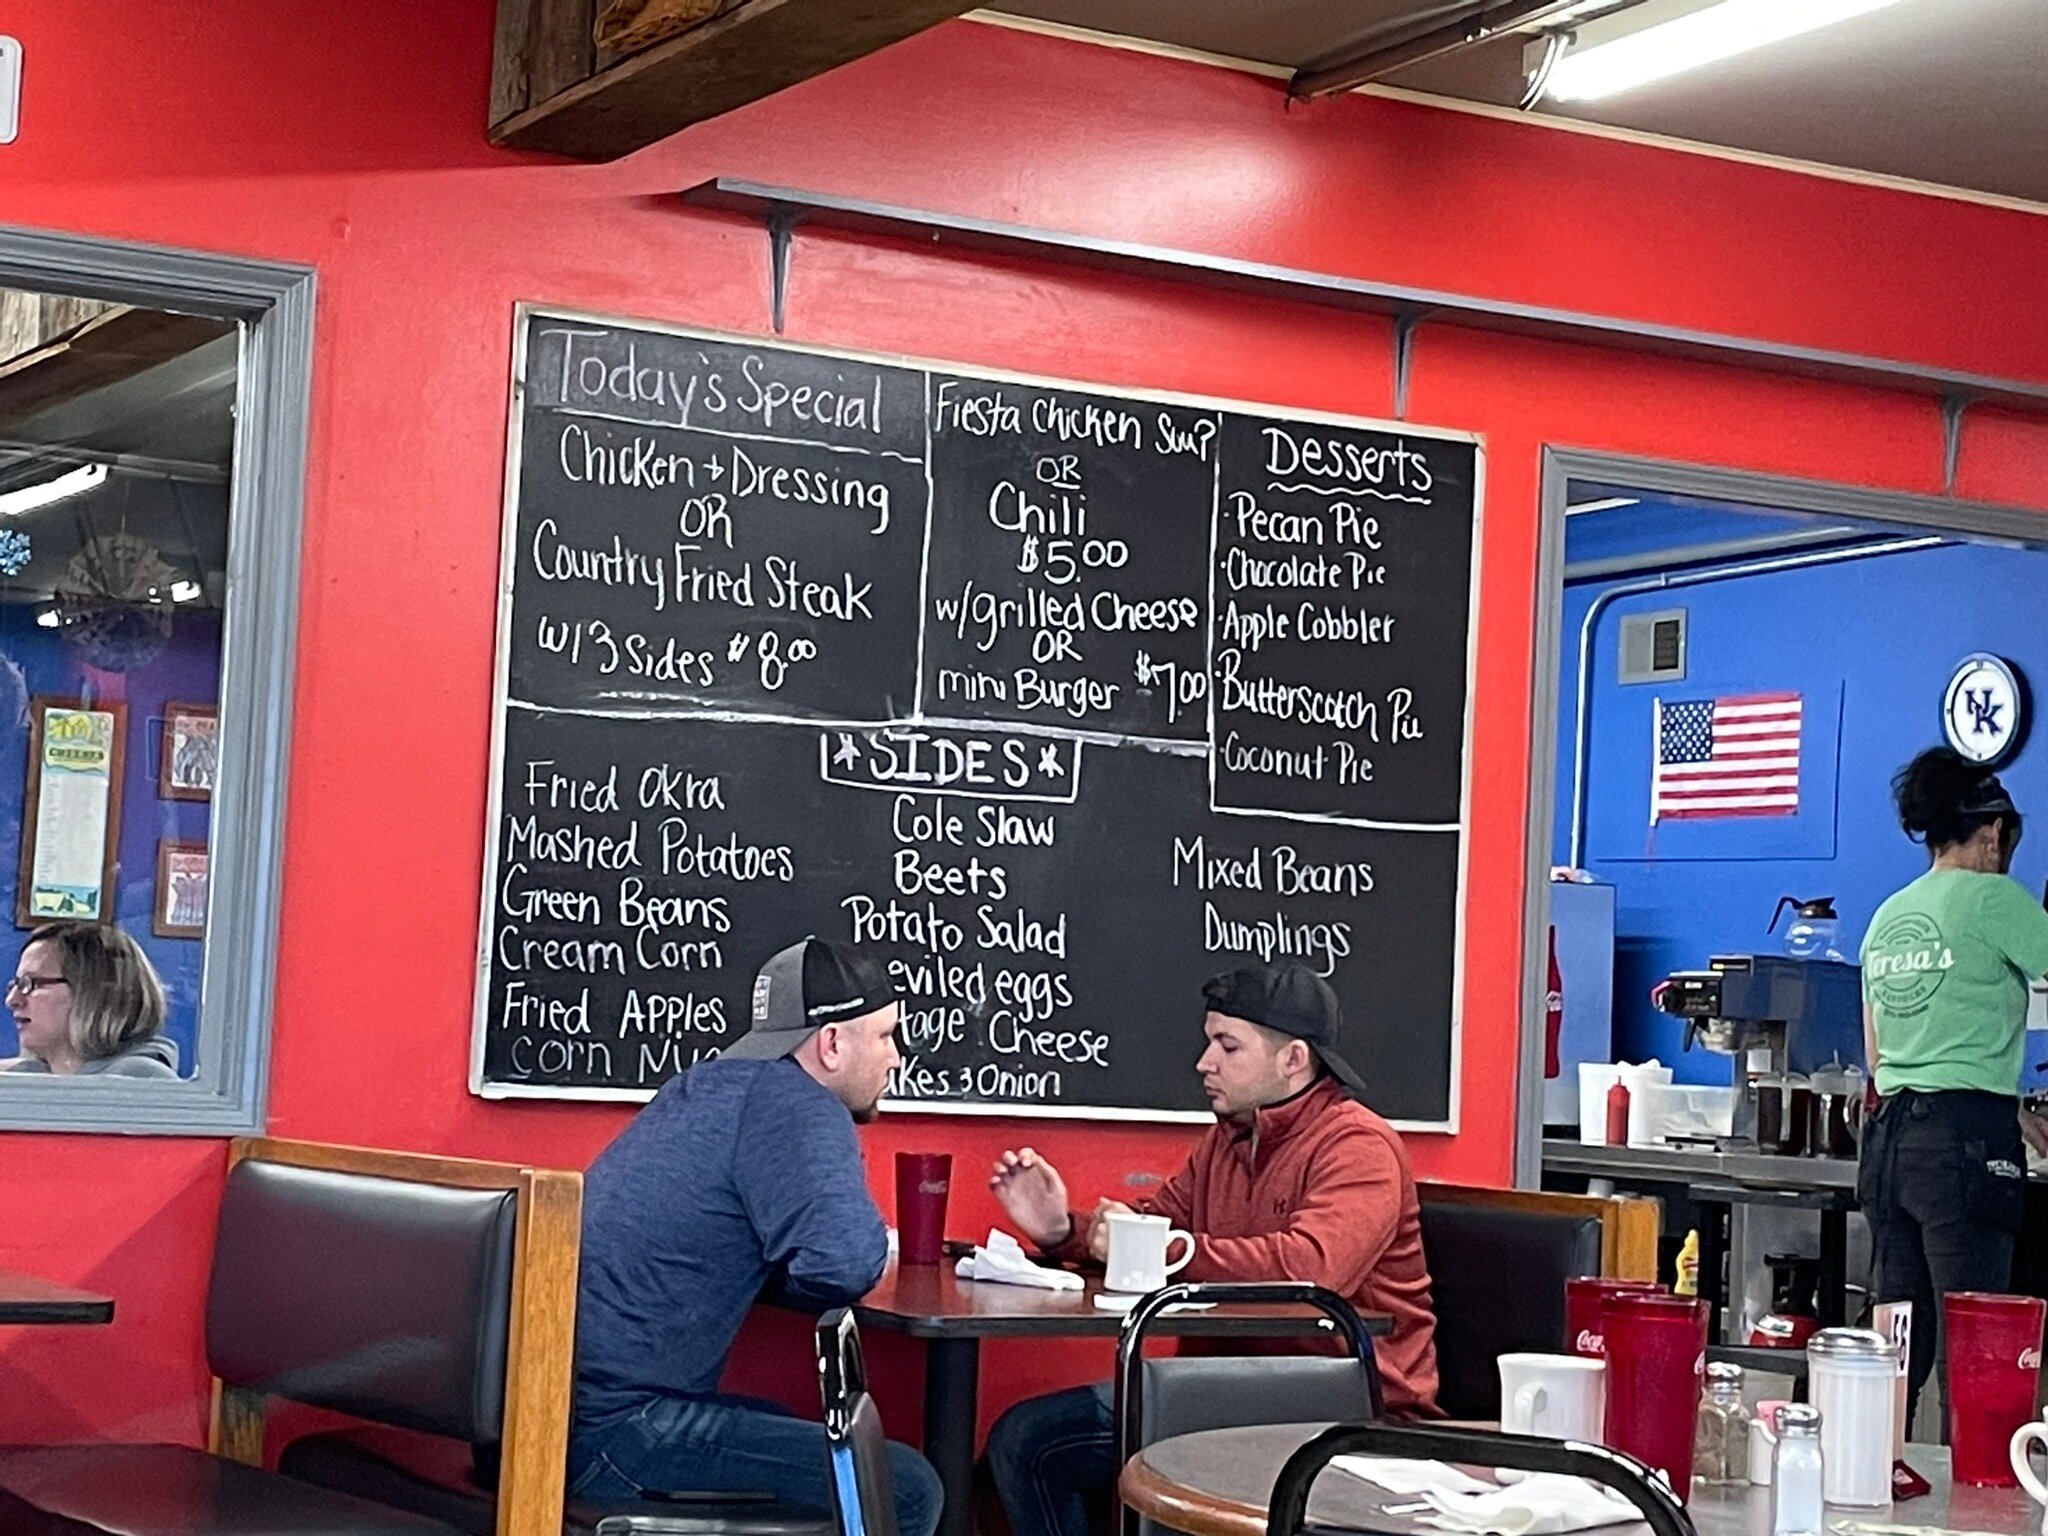 Today's Special
Chicken + Dressing
OR
Country Fried Steak
w/ 3 Sides $8.00
Fiesta Chicken
OR
Chili
$5.00
w/grilled Cheese
OR
mini Burger $7.00
Desserts
·Pecan Pie
·Chocolate Pie
·Apple Cobbler
·Butterscotch Pie
·Coconut Pie
*SIDES*
Fried Okra
Mashed Potatoes
Green Beans
Cream Corn
Fried Apples
Corn
Cole Slaw
Beets
Potato Salad
eviled eggs
tage Cheese
akes 3 Onion
Mixed Beans
Dumplings
UK
Teresa's
CHEESES
Coca
56